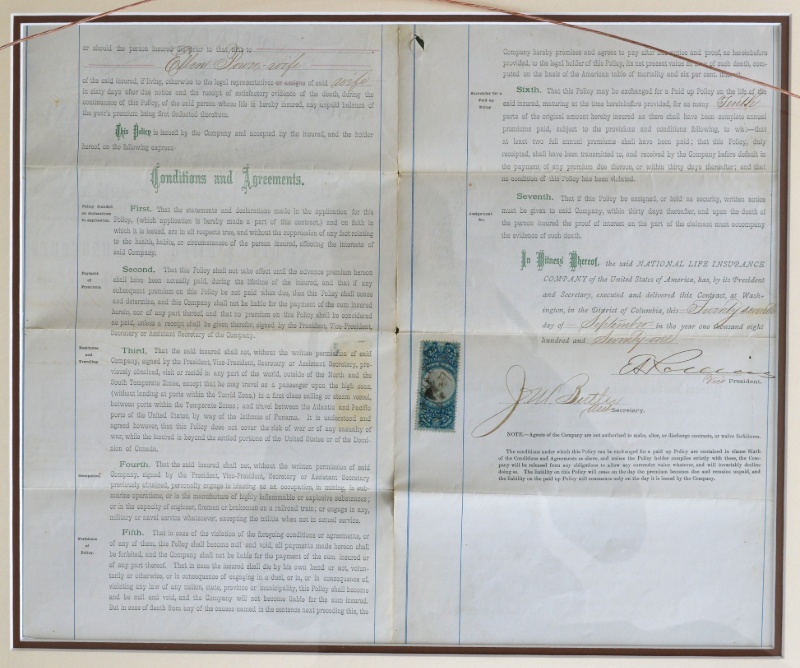 or should the person insured die prior to that date to
Ellen wife
of the said insured, if living, otherwise to the legal representatives or assigns of said wife
in sixty days after due notice and the receipt of satisfactory evidence of the death, during the
continuance of this Policy, of the said person whose life is hereby insured, any unpaid balance of
the year's premium being first deducted therefrom.
This Policy is issued by the Company and accepted by the insured, and the holder
hereof, on the following express
Conditions and Agreements.
Policy founded
on declarations
in application.
First. That the statements and declarations made in the application for this
Policy, (which application is hereby made a part of this contract,) and on faith in
which it is issued, are in all respects true, and without the suppression of any fact relating
to the health, habits, or circumstances of the person insured, affecting the interests of
said Company.
Payment
of
Premiums.
Second. That this Policy shall not take effect until the advance premium hereon
shall have been actually paid, during the lifetime of the insured, and that if any
subsequent premium on this Policy be not paid when due, then this Policy shall cease
and determine, and this Company shall not be liable for the payment of the sum insured
herein, nor of any part thereof; and that no premium on this Policy shall be considered
as paid, unless a receipt shall be given therefor, signed by the President, Vice-President,
Secretary or Assistant Secretary of the Company.
Residence
and
Traveling.
Third. That the said insured shall not, without the written permission of said
Company, signed by the President, Vice-President, Secretary or Assistant Secretary, pre-
viously obtained, visit or reside in any part of the world, outside of the North and the
South Temperate Zones, except that he may travel as a passenger upon the high seas,
(without landing at ports within the Torrid Zone,) in a first class sailing or steam vessel,
between ports within the Temperate Zones; and travel between the Atlantic and Pacific
ports of the United States, by way of the Isthmus of Panama. It is understood and
agreed however, that this Policy does not cover the risk of war or of any casualty of
war, while the insured is beyond the settled portions of the United States or of the Domi-
nion of Canada.
Occupation.
Fourth. That the said insured shall not, without the written permission of said
Company, signed by the President, Vice-President, Secretary or Assistant Secretary
previously obtained, personally engage in blasting as an occupation, in mining, in sub-
marine operations, or in the manufacture of highly inflammable or explosive substances;
or in the capacity of engineer, fireman or brakeman on a railroad train; or engage in any,
military or naval service whatsoever, excepting the militia when not in actual service.
Forfeiture
of
Policy.
Fifth. That in case of the violation of the foregoing conditions or agreements, or
of any of them, this Policy shall become null and void, all payments made hereon shall
be forfeited, and the Company shall not be liable for the payment of the sum insured or
of any part thereof. That in case the insured shall die by his own hand or act, volun-
tarily or otherwise, or in consequence of engaging in a duel, or in, or in consequence of,
violating any law of any nation, state, province or municipality, this Policy shall become
and be null and void, and the Company will not become liable for the sum insured.
But in case of death from any of the causes named in the sentence next preceding this, the
Company hereby promises and agrees to pay after due notice and proof, as hereinbefore
provided, to the legal holder of this Policy, its net present value at time of such death, com-
puted on the basis of the American table of mortality and six per cent interest.
Surrender for a
Paid up
Policy.
Sixth. That this Policy may be exchanged for a Paid Up Policy on the life of the
said insured, maturing at the time hereinbefore provided, for so many Tenth
parts of the original amount hereby insured as there shall have been complete annual
premiums paid, subject to the provisions and conditions following, to wit:—that
at least two full annual premiums shall have been paid; that this Policy, duly
receipted, shall have been transmitted to, and received by the Company before default in
the payment of any premium due thereon, or within thirty days thereafter; and that
no condition of this Policy has been violated.
Assignment
&c.
Seventh. That if this Policy be assigned, or held as security, written notice
must be given to said Company, within thirty days thereafter, and upon the death of
the person insured the proof of interest on the part of the claimant must accompany
the evidence of such death.
In Witness Whereof, the said NATIONAL LIFE INSURANCE
COMPANY of the United States of America, has, by its President
and Secretary, executed and delivered this Contract, at Wash-
ington, in the District of Columbia, this Twenty seventh
day of September in the year one thousand eight
hundred and Seventy one
Vice President.
J.M. Butler
Secretary.
NOTE.—Agents of the Company are not authorized to make, alter, or discharge contracts, or waive forfeitures.
The conditions under which this Policy can be exchanged for a paid up Policy are contained in clause Sixth
of the Conditions and Agreements as above, and unless the Policy holder complies strictly with these, the Com-
pany will be released from any obligations to allow any surrender value whatever, and will invariably decline
doing so. The liability on this Policy will cease on the day the premium becomes due and remains unpaid, and
the liability on the paid up Policy will commence only on the day it is issued by the Company.